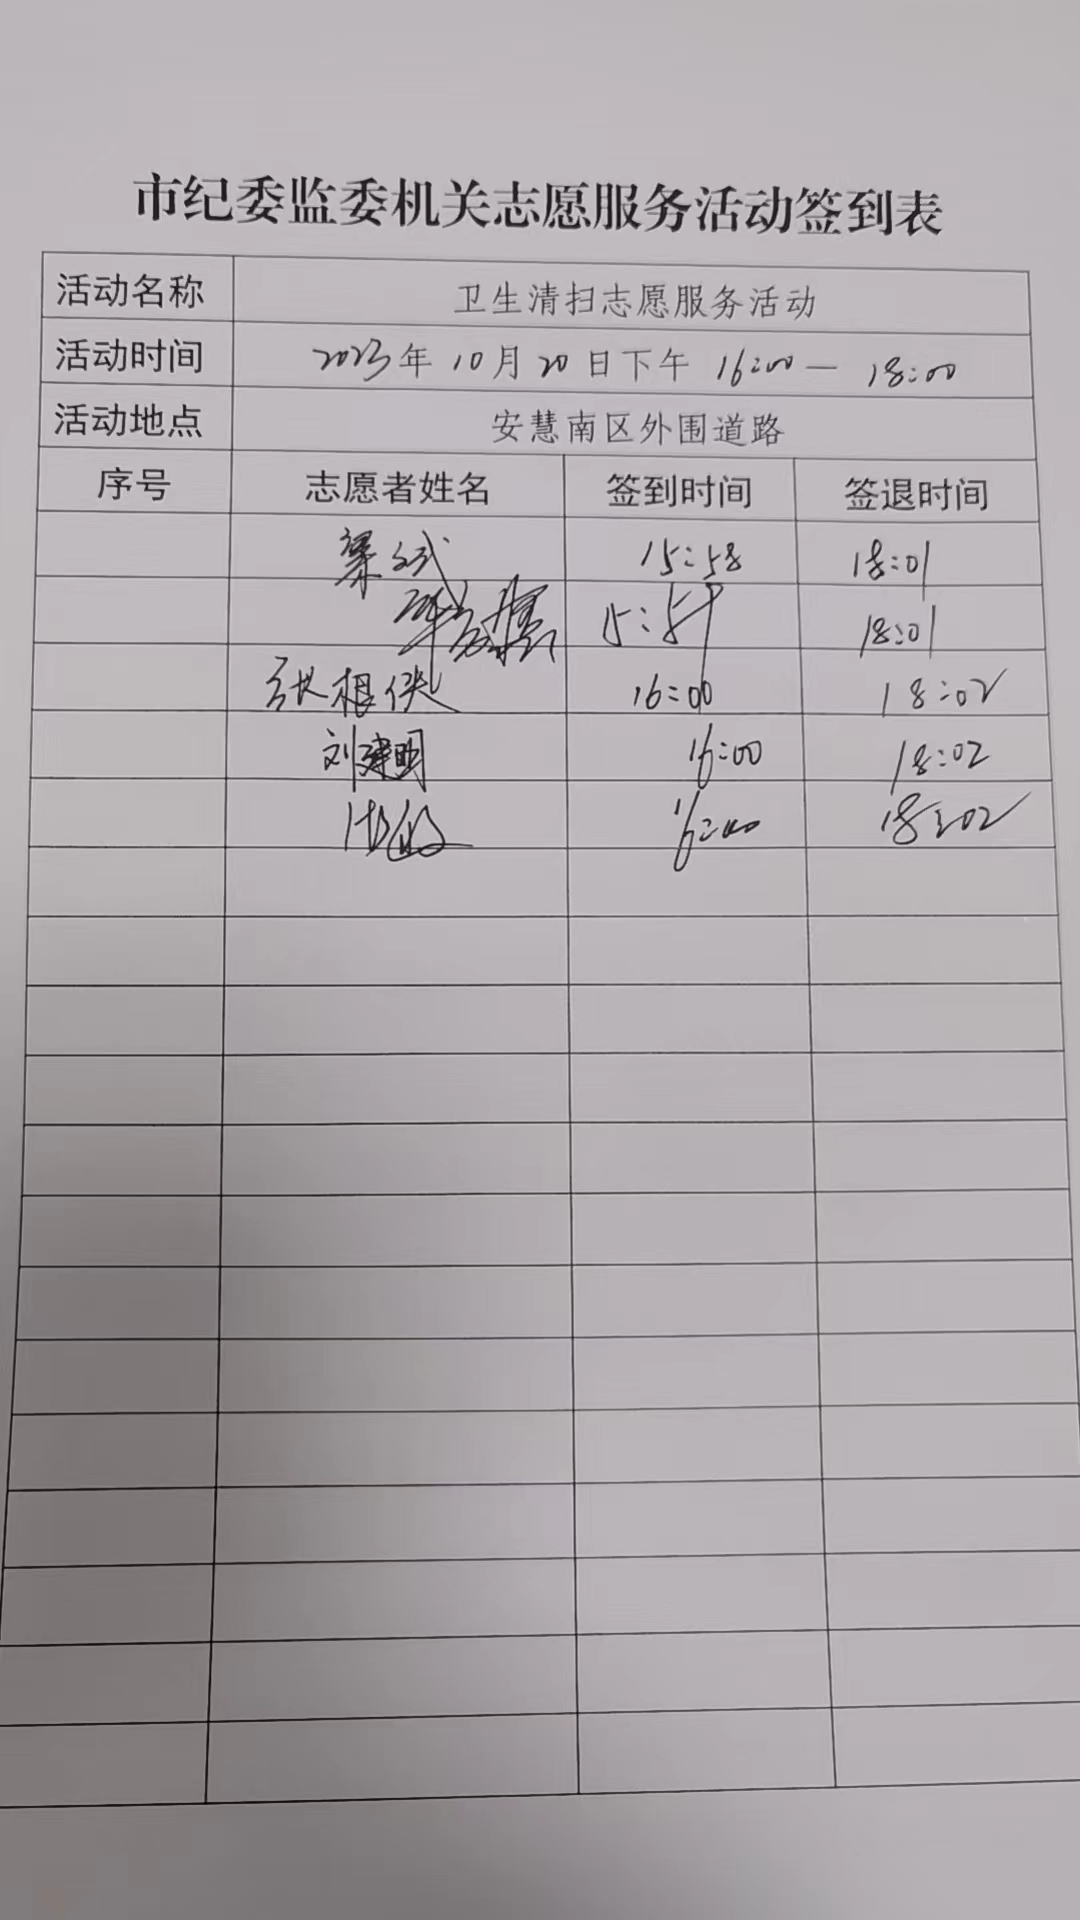 市纪委监委机关志愿服务活动签到表
活动名称 卫生清扫志愿服务活动
活动时间 2023年10月20日下午 16:00 — 18:00
活动地点 安慧南区外围道路
序号 志愿者姓名 签到时间 签退时间
梁 15:58 18:01
15:59 18:01
张相侠 16:00 18:02
刘建明 16:00 18:02
16:00 18:02